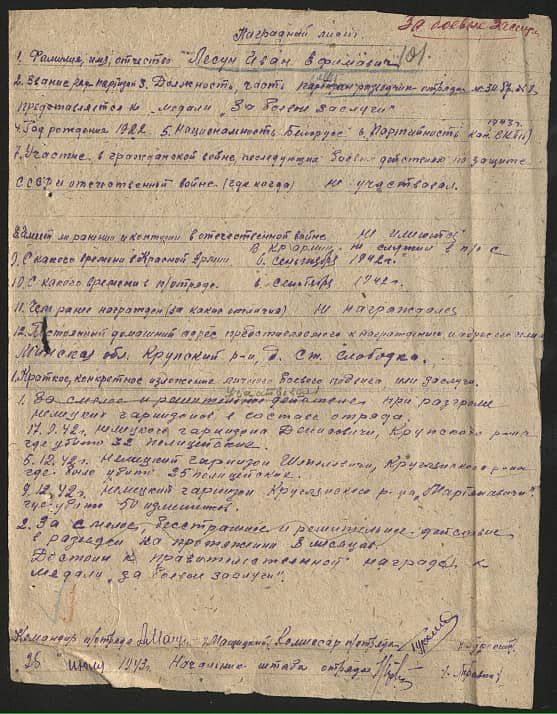 За боевые заслуги
Наградной лист
101
1. Фамилия, имя, отчество Лесун Иван Ефимович
2. Звание ряд. партизан 3. Должность, часть партизан разведчик отряда №
представляется к медали „За боевые заслуги"
1943 г.
4. Год рождения 1922 5. Национальность Белорус 6. Партийность кан. ВКП(б)
7. Участие в гражданской войне, последующих боевых действиях по защите
СССР и отечественной войне (где когда) не участвовал.
8. Имеет ли ранения и контузии в отечественной войне Не имеются
В Кр. армии не служил в п/о с
9. С какого времени в Красной Армии в. сентября 1942 г.
10. С какого времени в п/отряде. в. сентября 1942 г.
11. Чем ранее награжден (за какие отличия) Не награждался
12. Постоянный домашний адрес представляемого к награждению и адрес его семьи
Минская обл. Крупский р-н, д. Ст. Слободка.
1. Краткое, конкретное изложение личного боевого подвига, или заслуги.
участвовал
1. За смелые и решительные действия при разгроме
немецких гарнизонов в составе отряда.
17.9.42 г. немецкого гарнизона Крупского р-на
где убито 32 полицейских.
6.12.42 г. Немецкий гарнизон р-на
где было убито 25 полицейских.
9.12.42 г. Немецкий гарнизон р-на
где убито 50 изменников.
2. За смелое, бесстрашное и решительное действие
в разведке на протяжении 8 месяцев.
Достоин к правительственной награде к
медали „за боевые заслуги".
Командир п/отряда Мацкий, Комиссар п/отряда
26 июля 1943 г. Начальник штаба отряда